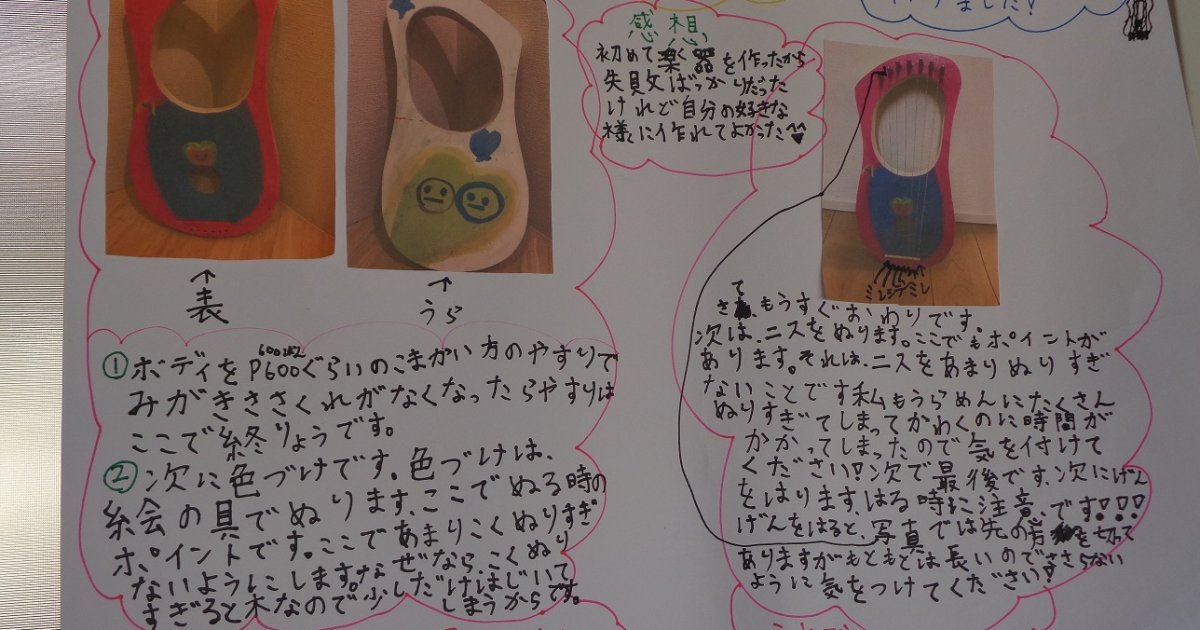 感想
初めて楽器を作ったから
失敗ばっかりだった
けれど自分の好きな
様に作れてよかった^^♥
↑
表
↑
うら
①ボディをP600ぐらいのこまかい方のやすりで
みがきささくれがなくなったらやすりは
ここで終りょうです。
②次に色づけです。色づけは、
絵会の具でぬります、ここでぬる時の
ポイントです。ここであまりこくぬりすぎ
ないようにします。なぜなら、こくぬり
すぎると木なので少しだけはじいて
しまうからです。
さてもうすぐおわりです。
次は、ニスをぬります。ここでもポイントが
あります。それは、ニスをあまりぬりすぎ
ないことです私もうらめんにたくさん
ぬりすぎてしまってかわくのに時間が
かかってしまったので気を付けて
ください!次で最後です、次にげん
をはります、はる時に注意、です!!!
げんをはると、写真では先の方を切って
ありますがもともとは長いのでささらない
ように気をつけてください!